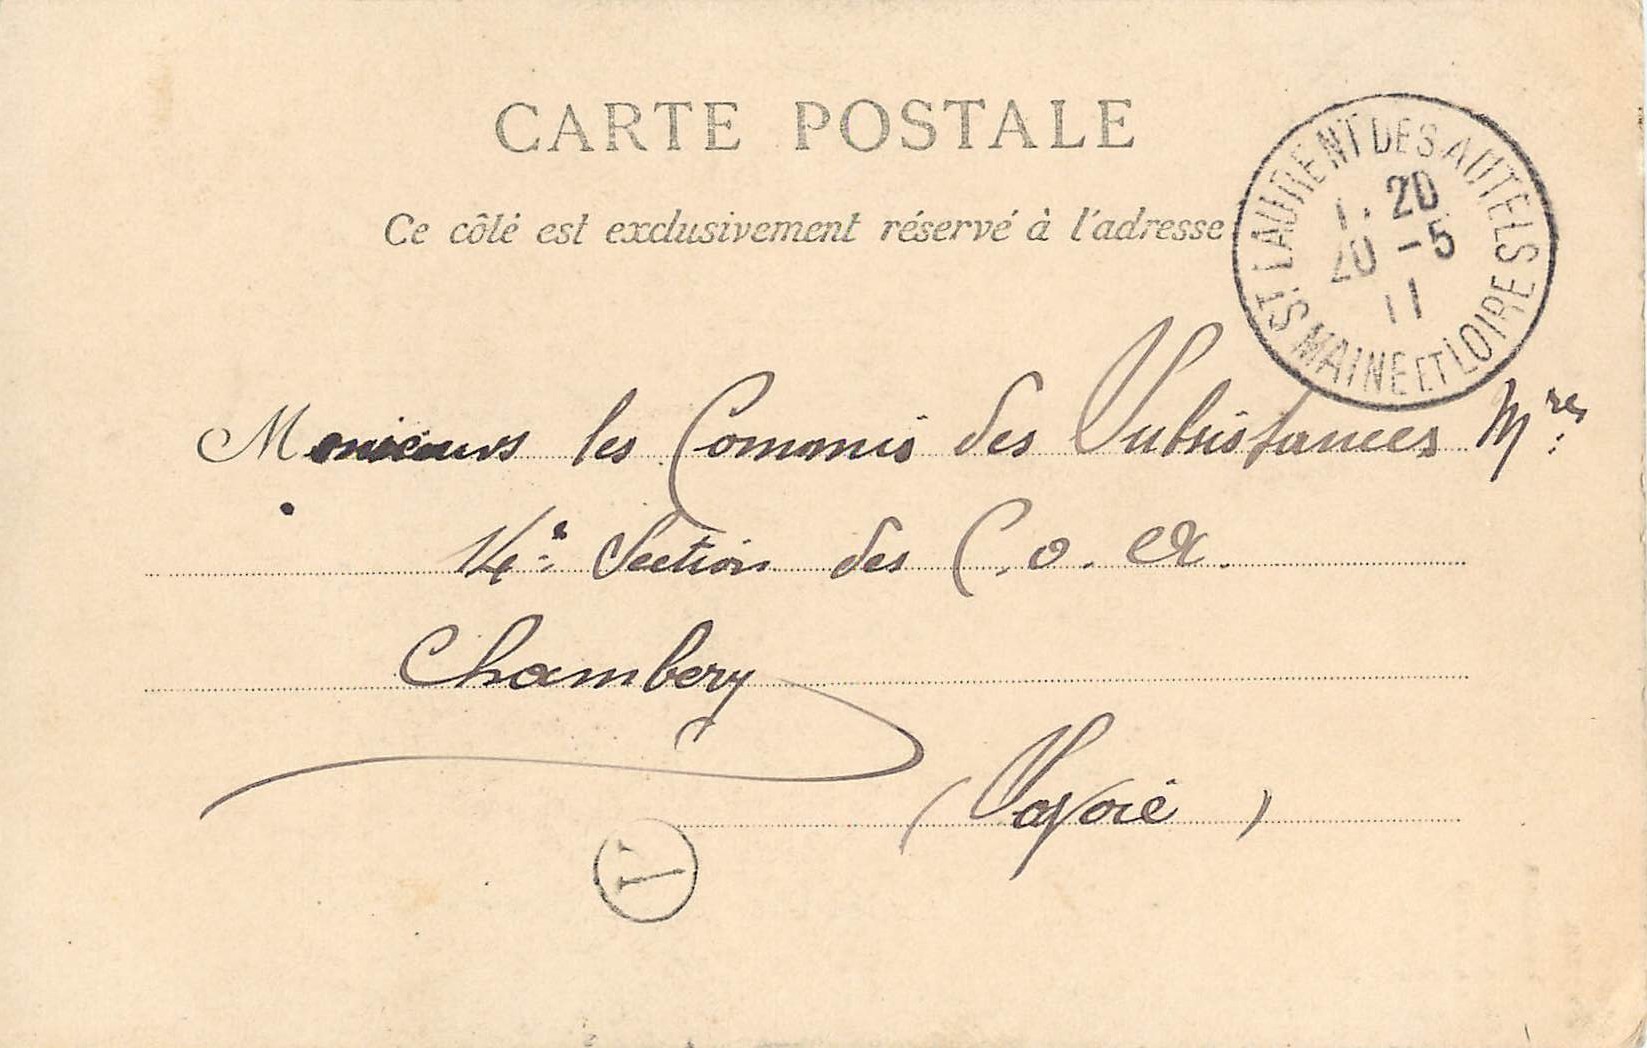 CARTE POSTALE
Ce côté est exclusivement réservé à l'adresse
ST LAURENT DES AUTELS
1. 20
20 - 5
11
MAINE ET LOIRE
Monsieurs les Commis des Subsistances Mres
14e Section des C.O.A.
Chambery
(Savoie)